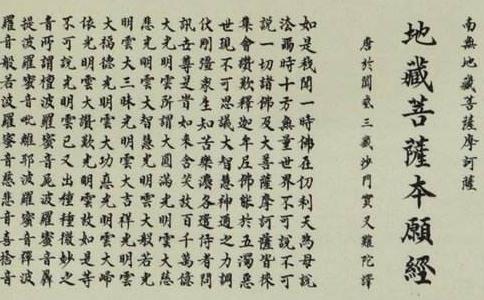 南無地藏菩薩摩訶薩
地藏菩薩本願經
唐於闐國三藏沙門實叉難陀譯
如是我聞一時佛在忉利天為母說
法爾時十方無量世界不可說不可
說一切諸佛及大菩薩摩訶薩皆來
集會讚歎釋迦牟尼佛能於五濁惡
世現不可思議大智慧神通之力調
伏剛彊衆生知苦樂法各遣侍者問
訊世尊是時如來含笑放百千萬億
大光明雲所謂大圓滿光明雲大慈
悲光明雲大智慧光明雲大般若光
明雲大三昧光明雲大吉祥光明雲
大福德光明雲大功德光明雲大歸
依光明雲大讚歎光明雲放如是等
不可說光明雲已又出種種微妙之
音所謂檀波羅蜜音尸波羅蜜音羼
提波羅蜜音毗離耶波羅蜜音禪波
羅蜜音般若波羅蜜音慈悲音喜捨音